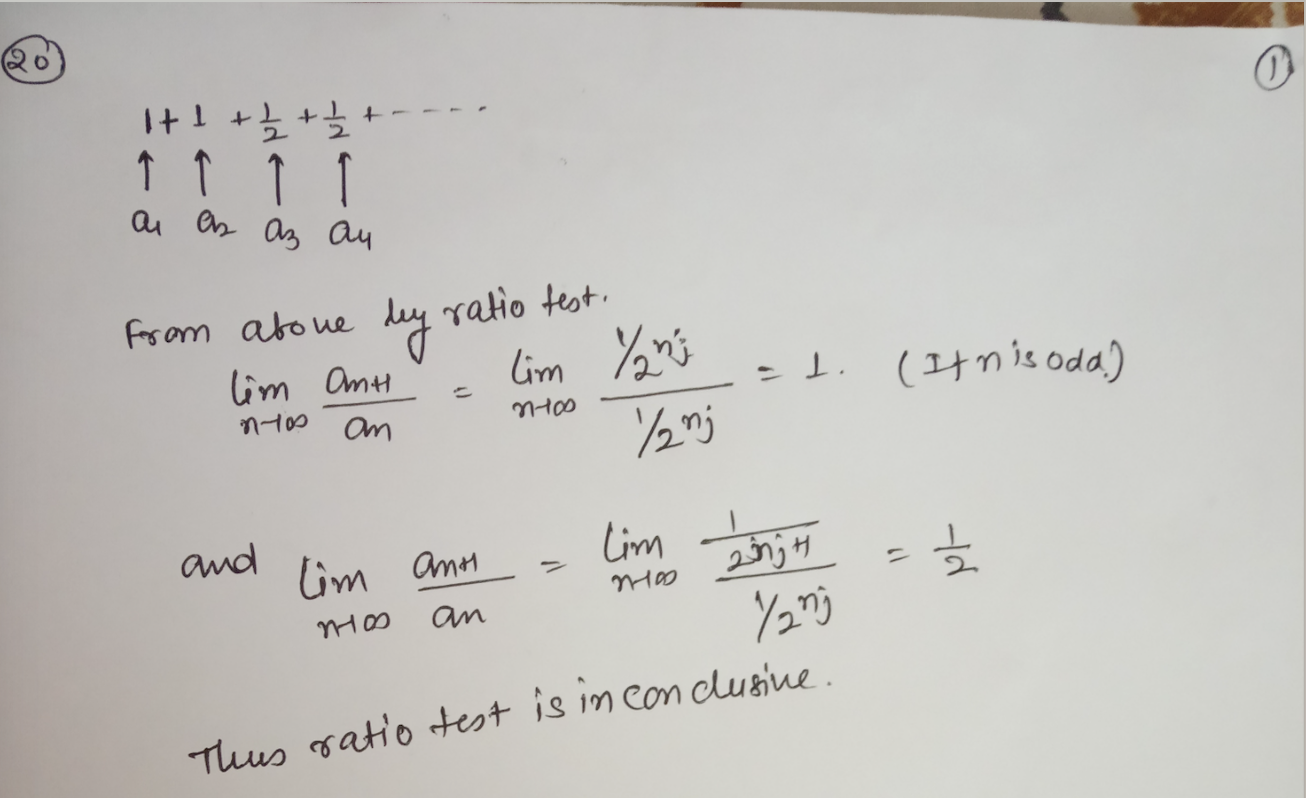 20 1
1 + 1 + 1/2 + 1/2 + - - - - -
↑ ↑ ↑ ↑
a1 a2 a3 a4
From above by ratio test.
lim n→∞ an+1/an = lim n→∞ (1/2^nj)/(1/2^nj) = 1. (If n is odd.)
and lim n→∞ an+1/an = lim n→∞ (1/2^nj+1)/(1/2^nj) = 1/2
Thus ratio test is inconclusive.